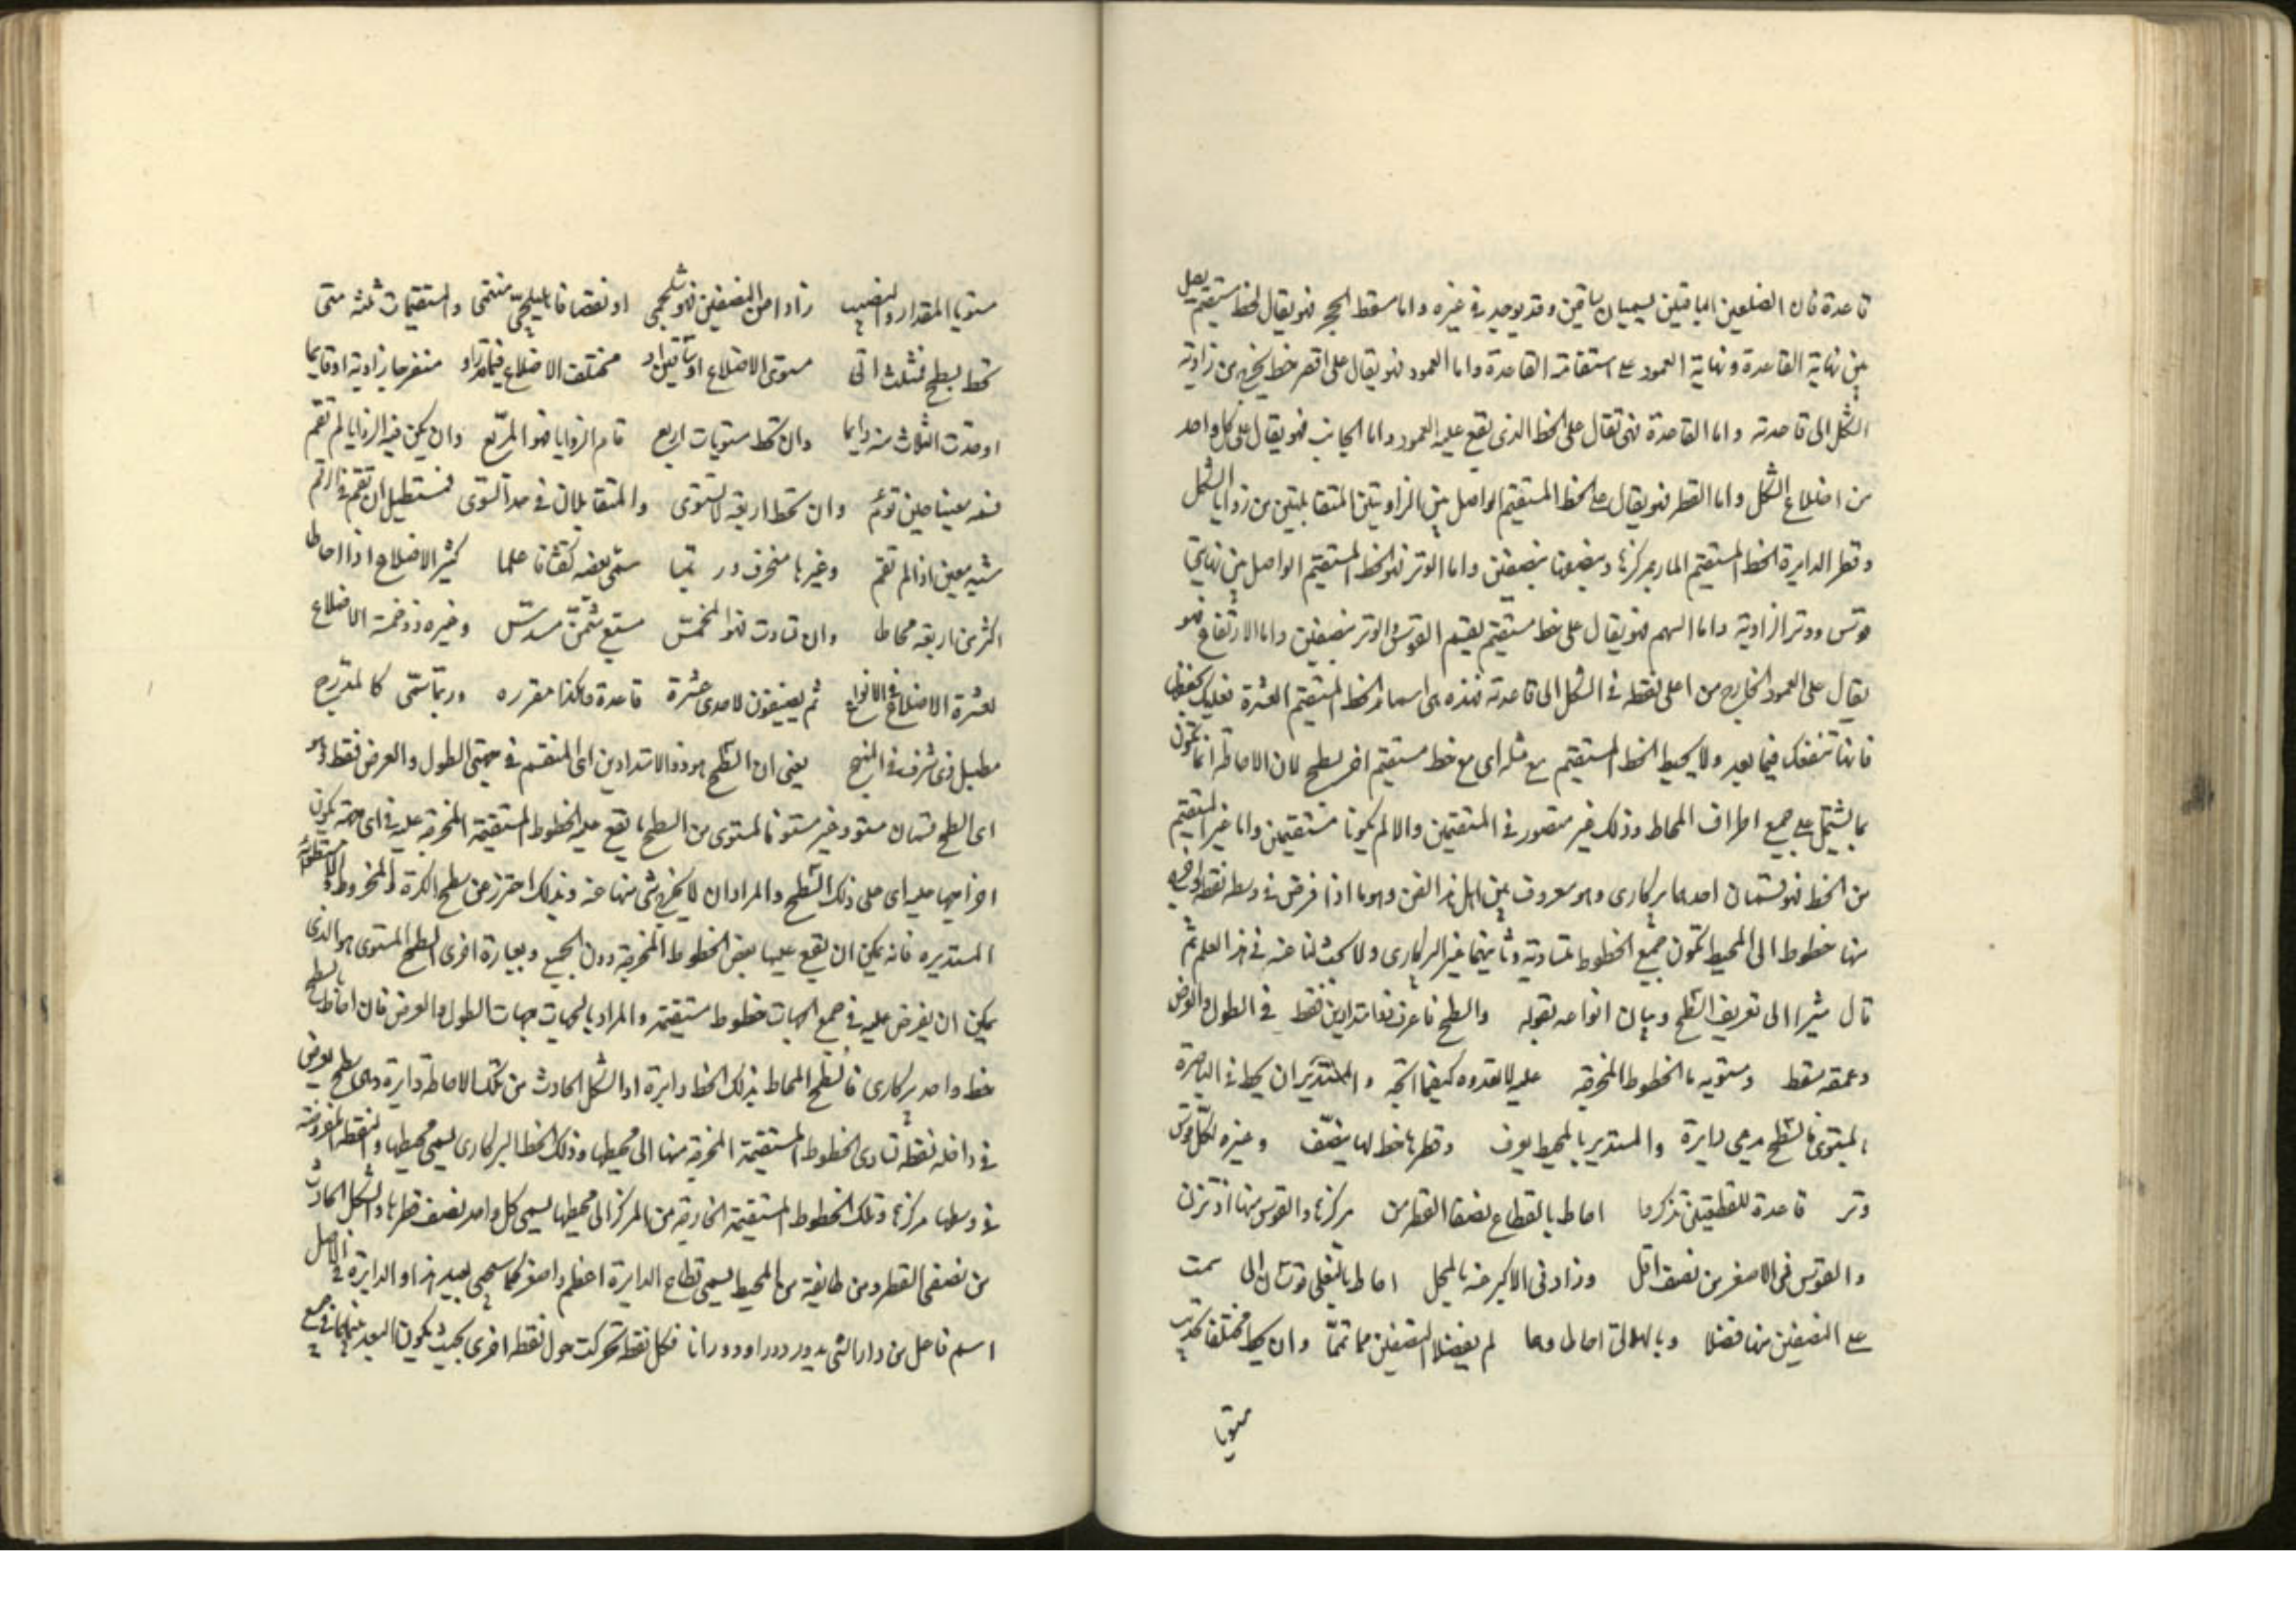 قاعدة فان الضلعين الباقيين يسميان ساقين وقد يوجد في غيره واما مسقط الحجر فهو يقال لخط مستقيم يصل
بين نهاية القاعدة ونهاية العمود على استقامة القاعدة واما العمود فهو يقال على اقصر خط يخرج من زاوية
الشكل الى قاعدته واما القاعدة فهى تقال على الخط الذى يقع عليه العمود واما الجانب فهو يقال على كل واحد
من اضلاع الشكل واما القطر فهو يقال على الخط المستقيم الواصل بين الزاويتين المتقابلتين من زوايا الشكل
وقطر الدايرة الخط المستقيم المار بمركزها ومنصفها بنصفين واما الوتر فهو الخط المستقيم الواصل بين نهايتي
قوس ووتر الزاوية واما السهم فهو يقال على خط مستقيم يقسم القوس والوتر بنصفين واما الارتفاع فهو
يقال على العمود الخارج من اعلى نقطه في الشكل الى قاعدته فهذه هى اسماء الخط المستقيم العشرة فعليك بحفظها
فانها تنفعك فيما بعد ولا يحيط الخط المستقيم مع مثله اى مع خط مستقيم اخر بسطح لان الاحاطة انما تكون
بما يشتمل على جميع اطراف المحاط وذلك غير متصور في المستقيمين والا لم يكونا مستقيمين واما غير المستقيم
من الخط فهو قسمان احدهما بركارى وهو معروف بين اهل هذا الفن وهو ما اذا فرض في وسطه نقطه
منها خطوط الى المحيط تكون جميع الخطوط متساوية وثانيهما غير البركارى ولا بحث لنا عنه في هذا العلم ثم
قال مشيرا الى تعريف السطح وبيان انواعه بقوله والسطح فاعرف ذا امتدادين فقط في الطول والعرض
وعمقه سقط ومستويه ما الخطوط المخرجه عليه لا بعدوه كيفما اتجه والمستديران يحط في الباصرة
بالمستوى فالسطح يدعى دايرة والمستدير بالمحيط يعرف وقطرها خط لها ينصّف وغيره لكل قوس
وتر قاعدة للقطعتين تذكرها احاط بالقطاع نصفا القطر من مركزها والقوس منها اذ تزن
والقوس فى الاصغر من نصف اقل وزاد فى الاكبر عنه بالمحل احاط بالنعلى قوسان الى سمت
على النصفين منها فضلا وبالهلالى احاطا وهما لم يفضلا النصفين مما تمّا وان يحط مختلفا تحديب
مستويا
مستويا المقدار والتحديب زادا من النصفين فهو شلجمى او نقصا فاهليلجيّ منتمى والمستقيمات ثلثه متى
تحط بسطح فمثلث اتى مستوى الاضلاع او ساقين او مختلف الاضلاع فيما قد راو منفرجا زاوية او قايما
او حدّت الثلاث منه دايما وان تحط مستويات اربع قام الزوايا فهو المربّع وان يكن فيه الزوايا لم تقم
فسمه معينا حين تؤم وان تحط اربعة لا تستوى والمتقابلان في حد السوى فمستطيل ان تقم في الرقم
شبيه معين اذا لم تقم وغيرها منحرف وربّما سمى بعضه بقثاء علما كثير الاضلاع اذا احاطا
اكثر من اربعة محاطا وان تساوت فهو المخمّس مسبّع مثمّن مسدّس وغيره ذو خمسة الاضلاع
لعشرة الاضلاع في الانواع ثم يضيفون لاحدى عشرة قاعدة هكذا مقرره وربّما سمّى كالمدرج
مطبل ذى شرف في المنهج يعنى ان السطح هو ذو الامتدادين اى المنقسم في جهتى الطول والعرض فقط وهو
اى السطح قسمان مستو وغير مستو فالمستوى من السطح ما يقع عليه الخطوط المستقيمة المخرجة عليه في اى جهة يكون
اخراجها عليه اى على ذلك السطح والمراد ان لا يخرج شى منها عنه وبذلك احترز عن سطح الكرة والمخروط والاسطوانة
المستديره فانه يمكن ان يقع عليها بعض الخطوط المخرجة دون الجميع وبعبارة اخرى السطح المستوى هو الذى
يمكن ان يفرض عليه في جميع الجهات خطوط مستقيمة والمراد بالجهات جهات الطول والعرض فان احاط بالسطح
خط واحد بركارى فالسطح المحاط بذلك الخط دايرة او الشكل الحادث من تلك الاحاطة دايرة وهى سطح يفرض
في داخله نقطة تساوى الخطوط المستقيمة المخرجة منها الى محيطها وذلك الخط البركارى يسمى محيطها والنقطة المفروضة
في وسطها مركزها وتلك الخطوط المستقيمة الخارجة من المركز الى محيطها يسمى كل واحد نصف قطرها والشكل الحادث
من نصفى القطر ومن طايفة من المحيط يسمى قطاع الدايرة اعظم واصغر كما سيجى بعيد هذا والدايرة في الاصل
اسم فاعل من دار الشى يدور دورا ودورانا فكل نقطة تحركت حول نقطة اخرى بحيث يكون البعد بينهما في جميع